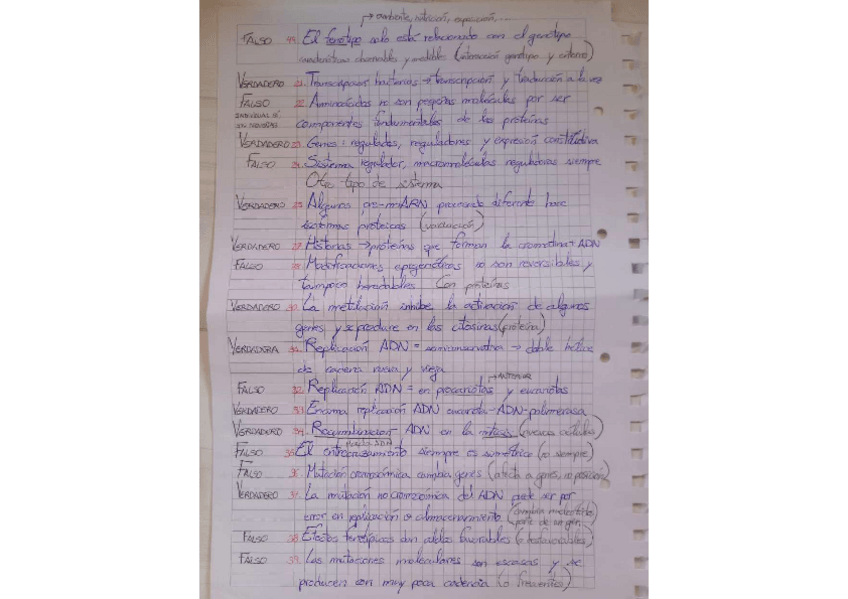 → ambiente, nutrición, exposición,...
FALSO 19. El fenotipo solo está relacionado con el genotipo
características observables y medibles (interacción genotipo y entorno)
VERDADERO 21. Transcripción bacterias → transcripción y traducción a la vez
FALSO 22. Aminoácidos no son pequeñas moléculas por ser
componentes fundamentales de las proteínas
VERDADERO 23. Genes: regulados, reguladores y expresión constitutiva
FALSO 24. Sistema regulador, macromoléculas reguladoras siempre
Otro tipo de sistema
VERDADERO 25. Algunos pre-mARN procesado diferente hace
isoformas proteicas (variación)
VERDADERO 27. Histonas → proteínas que forman la cromatina + ADN
FALSO 28. Modificaciones epigenéticas no son reversibles y
tampoco heredables Con proteínas
VERDADERO 30. La metilación inhibe la activación de algunos
genes y se produce en las citosinas (proteína)
VERDADERA 31. Replicación ADN = semiconservativa → doble hélice
de cadena nueva y vieja
FALSO 32. Replicación ADN = en procariotas y eucariotas
VERDADERO 33. Enzima replicación ADN eucariota - ADN-polimerasa
VERDADERO 34. Recombinación ADN en la
FALSO 35. El entrecruzamiento siempre es simétrico (no siempre)
FALSO 36. Mutación cromosómica cambia genes (afecta a genes, no posición)
VERDADERO 37. La mutación no cromosómica del ADN puede ser por
error en replicación o almacenamiento (cambia nucleótidos
parte de un gen)
FALSO 38. Efectos fenotípicos dan alelos favorables (o desfavorables)
FALSO 39. Las mutaciones moleculares son escasas y se
producen con muy poca cadencia (o frecuentes)